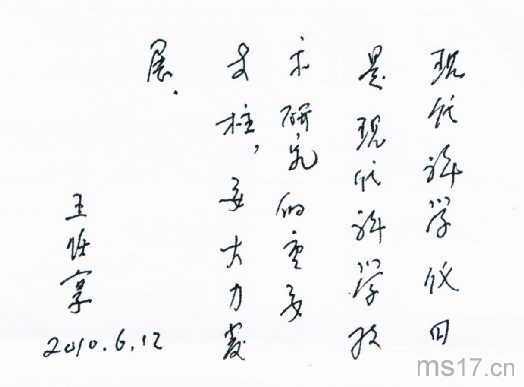 现代科学仪田
是现代科学技
术研究的重要
支柱，要大力发
展.
王任享
2010.6.12
ms17.cn